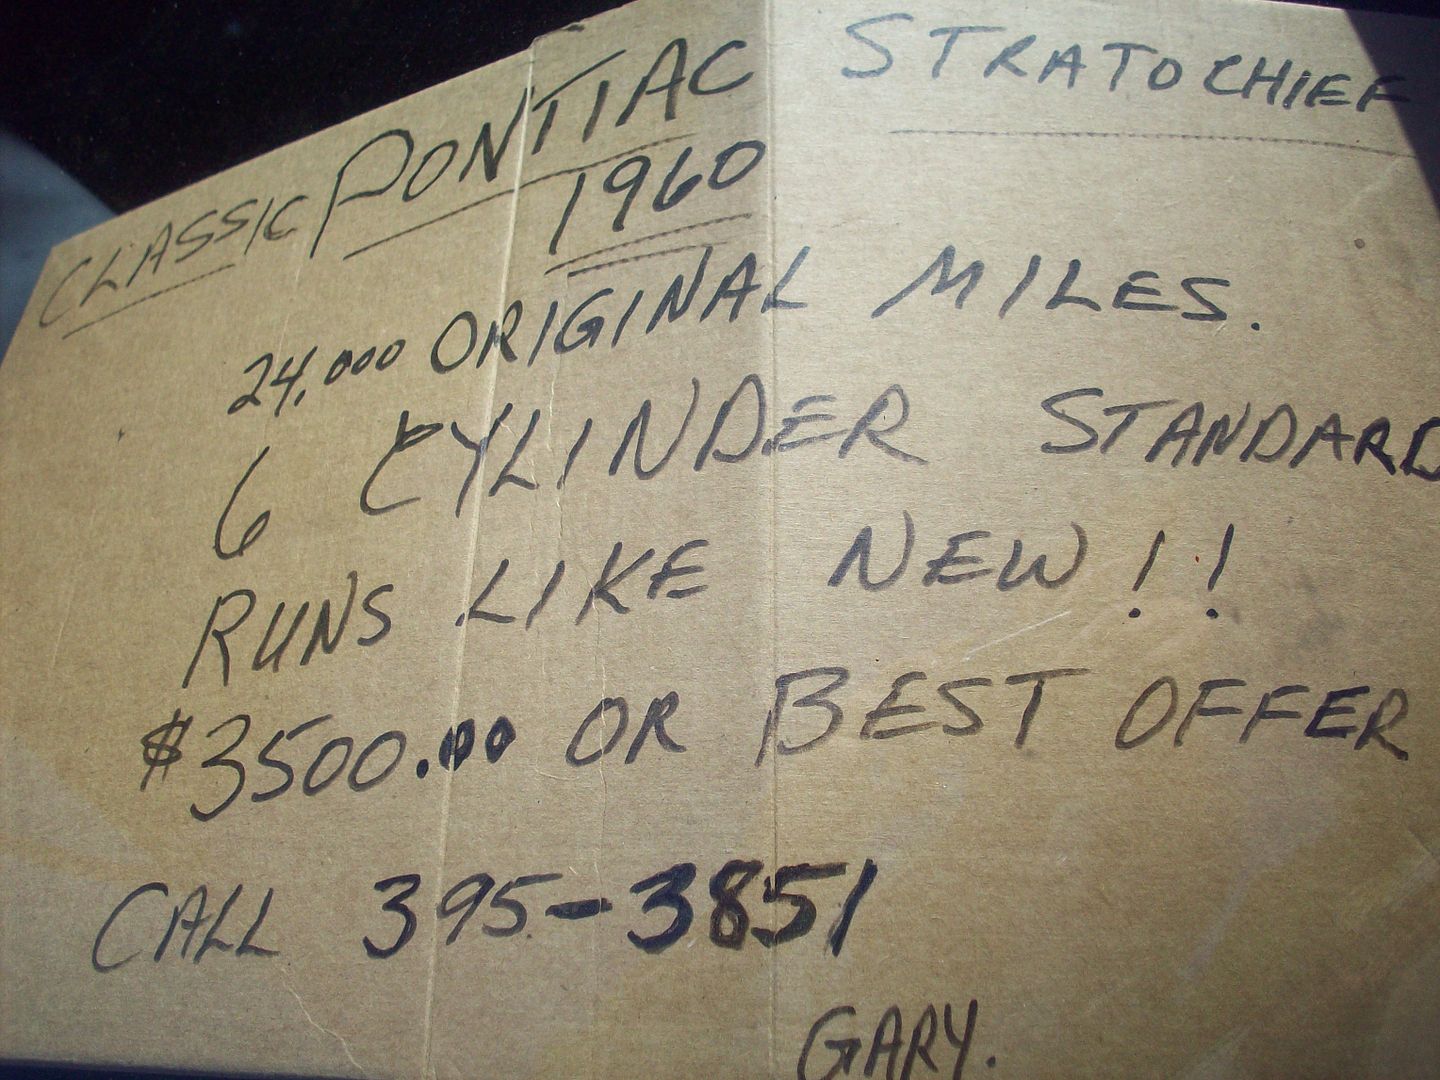 CLASSIC PONTIAC STRATOCHIEF
1960
24,000 ORIGINAL MILES.
6 CYLINDER STANDARD
RUNS LIKE NEW!!
$3500.00 OR BEST OFFER
CALL 395-3851
GARY.